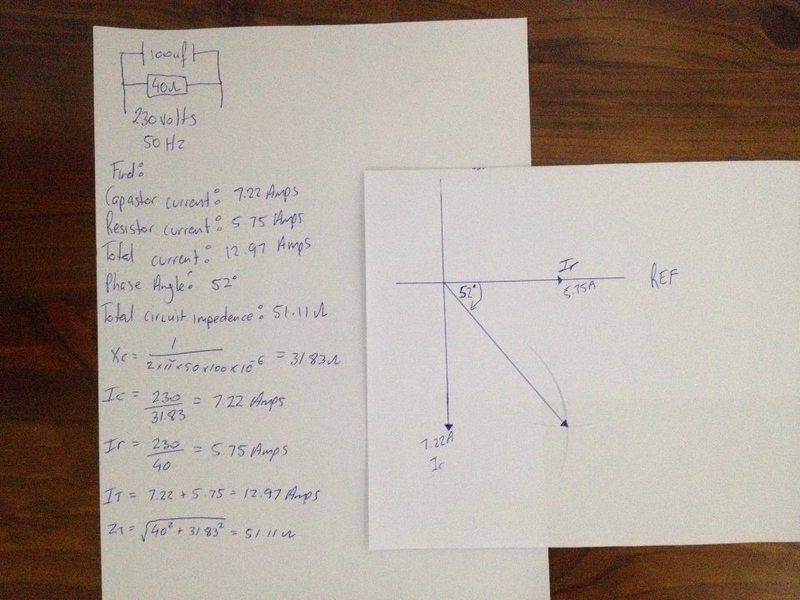 100uf
40Ω
230 volts
50 Hz
Find:
Capastor current: 7.22 Amps
Resistor current: 5.75 Amps
Total current: 12.97 Amps
Phase Angle: 52°
Total circuit impedence: 51.11 Ω
Xc = 1 / 2×π×50×100×10^-6 = 31.83Ω
Ic = 230 / 31.83 = 7.22 Amps
Ir = 230 / 40 = 5.75 Amps
IT = 7.22 + 5.75 = 12.97 Amps
ZT = √40² + 31.83² = 51.11 Ω
Ir
REF
52°
5.75A
7.22A
Ic